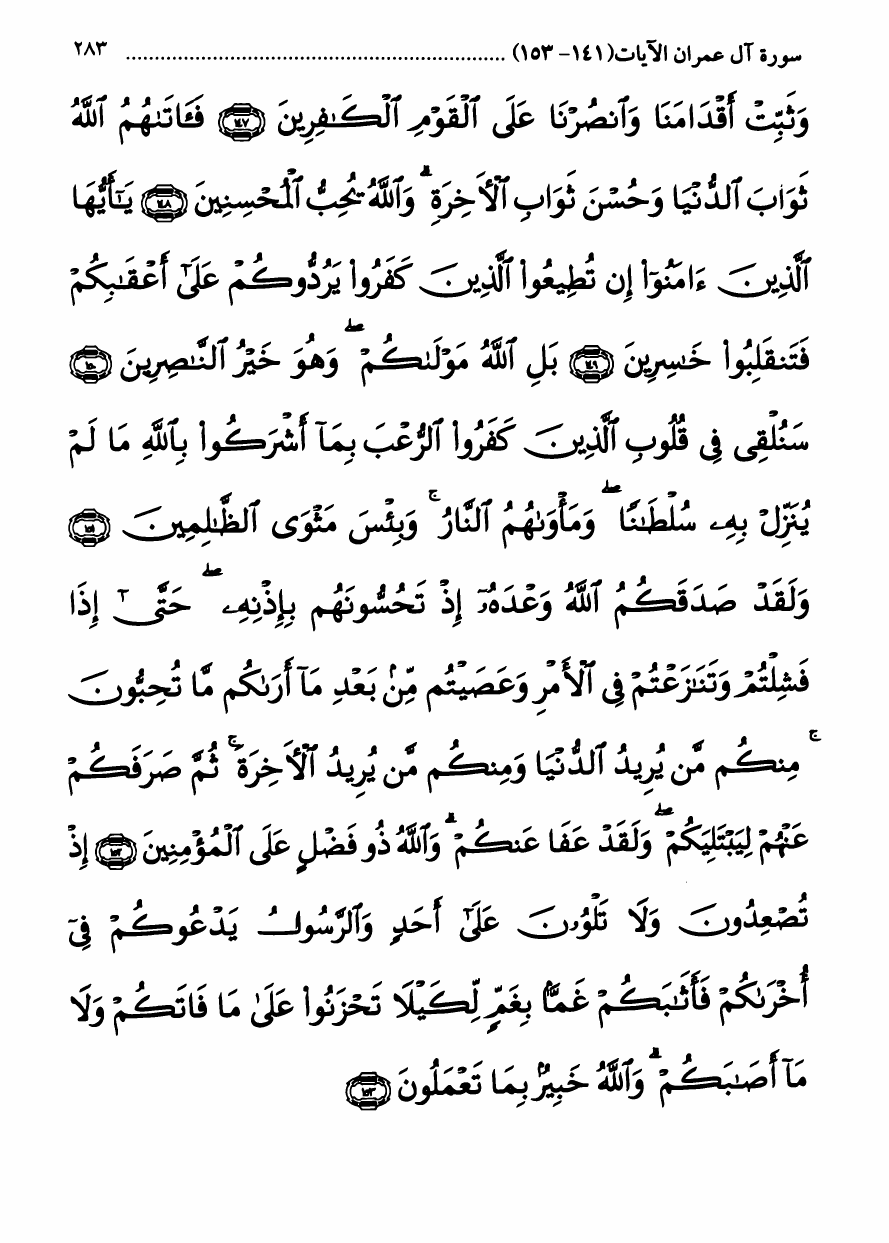 سورة آل عمران الآيات (١٤١- ١٥٣) .......................................................... ٢٨٣
وَثَبِّتْ أَقْدَامَنَا وَٱنصُرْنَا عَلَى ٱلْقَوْمِ ٱلْكَـٰفِرِينَ ﴿١٤٧﴾ فَـَٔاتَىٰهُمُ ٱللَّهُ
ثَوَابَ ٱلدُّنْيَا وَحُسْنَ ثَوَابِ ٱلْـَٔاخِرَةِ ۗ وَٱللَّهُ يُحِبُّ ٱلْمُحْسِنِينَ ﴿١٤٨﴾ يَـٰٓأَيُّهَا
ٱلَّذِينَ ءَامَنُوٓا۟ إِن تُطِيعُوا۟ ٱلَّذِينَ كَفَرُوا۟ يَرُدُّوكُمْ عَلَىٰٓ أَعْقَـٰبِكُمْ
فَتَنقَلِبُوا۟ خَـٰسِرِينَ ﴿١٤٩﴾ بَلِ ٱللَّهُ مَوْلَىٰكُمْ ۖ وَهُوَ خَيْرُ ٱلنَّـٰصِرِينَ ﴿١٥٠﴾
سَنُلْقِى فِى قُلُوبِ ٱلَّذِينَ كَفَرُوا۟ ٱلرُّعْبَ بِمَآ أَشْرَكُوا۟ بِٱللَّهِ مَا لَمْ
يُنَزِّلْ بِهِۦ سُلْطَـٰنًا ۖ وَمَأْوَىٰهُمُ ٱلنَّارُ ۚ وَبِئْسَ مَثْوَى ٱلظَّـٰلِمِينَ ﴿١٥١﴾
وَلَقَدْ صَدَقَكُمُ ٱللَّهُ وَعْدَهُۥٓ إِذْ تَحُسُّونَهُم بِإِذْنِهِۦ ۖ حَتَّىٰٓ إِذَا
فَشِلْتُمْ وَتَنَـٰزَعْتُمْ فِى ٱلْأَمْرِ وَعَصَيْتُم مِّنۢ بَعْدِ مَآ أَرَىٰكُم مَّا تُحِبُّونَ
ۚ مِنكُم مَّن يُرِيدُ ٱلدُّنْيَا وَمِنكُم مَّن يُرِيدُ ٱلْـَٔاخِرَةَ ۚ ثُمَّ صَرَفَكُمْ
عَنْهُمْ لِيَبْتَلِيَكُمْ ۖ وَلَقَدْ عَفَا عَنكُمْ ۗ وَٱللَّهُ ذُو فَضْلٍ عَلَى ٱلْمُؤْمِنِينَ ﴿١٥٢﴾ إِذْ
تُصْعِدُونَ وَلَا تَلْوُۥنَ عَلَىٰٓ أَحَدٍ وَٱلرَّسُولُ يَدْعُوكُمْ فِىٓ
أُخْرَىٰكُمْ فَأَثَـٰبَكُمْ غَمًّۢا بِغَمٍّ لِّكَيْلَا تَحْزَنُوا۟ عَلَىٰ مَا فَاتَكُمْ وَلَا
مَآ أَصَـٰبَكُمْ ۗ وَٱللَّهُ خَبِيرٌۢ بِمَا تَعْمَلُونَ ﴿١٥٣﴾